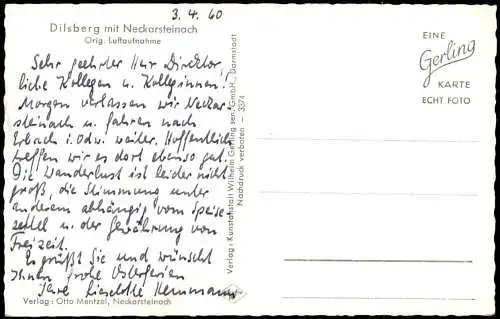 3.4.60
Dilsberg mit Neckarsteinach
Orig. Luftaufnahme
Sehr geehrter Herr Direktor,
liebe Kollegen u. Kolleginnen!
Morgen verlassen wir Neckar-
steinach u. fahren nach
Erbach i. Odw. weiter. Hoffentlich
treffen wir es dort ebenso gut.
Die Wanderlust ist leider nicht
groß, die Stimmung unter
anderem abhängig vom Speise-
zettel u. der Gewährung von
Freizeit.
Es grüßt Sie und wünscht
Ihnen frohe Osterferien
Ihre Lieselotte Herrmann
Verlag: Otto Mentzel, Neckarsteinach
Verlag: Kunstanstalt Wilhelm Gerling sen. GmbH., Darmstadt
Nachdruck verboten – 3374
EINE
Gerling
KARTE
ECHT FOTO